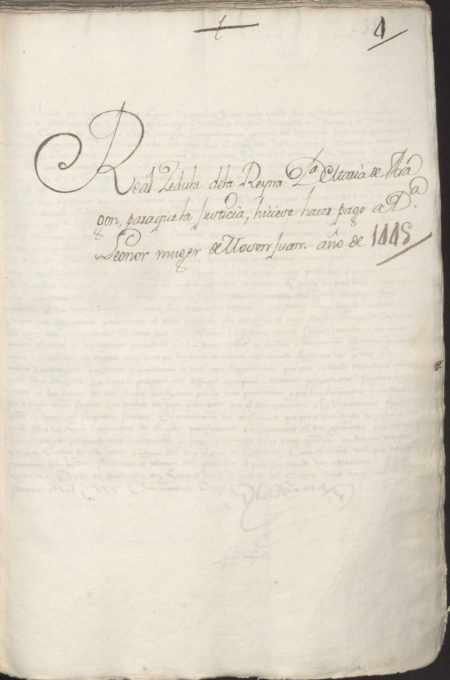 4
Real Zedula dela Reyna D.ª Maria de Ara
gon, paraque la Justicia, hiciese hacer pago a D.ª
Leonor muger de Mosen Juan. año de 1445